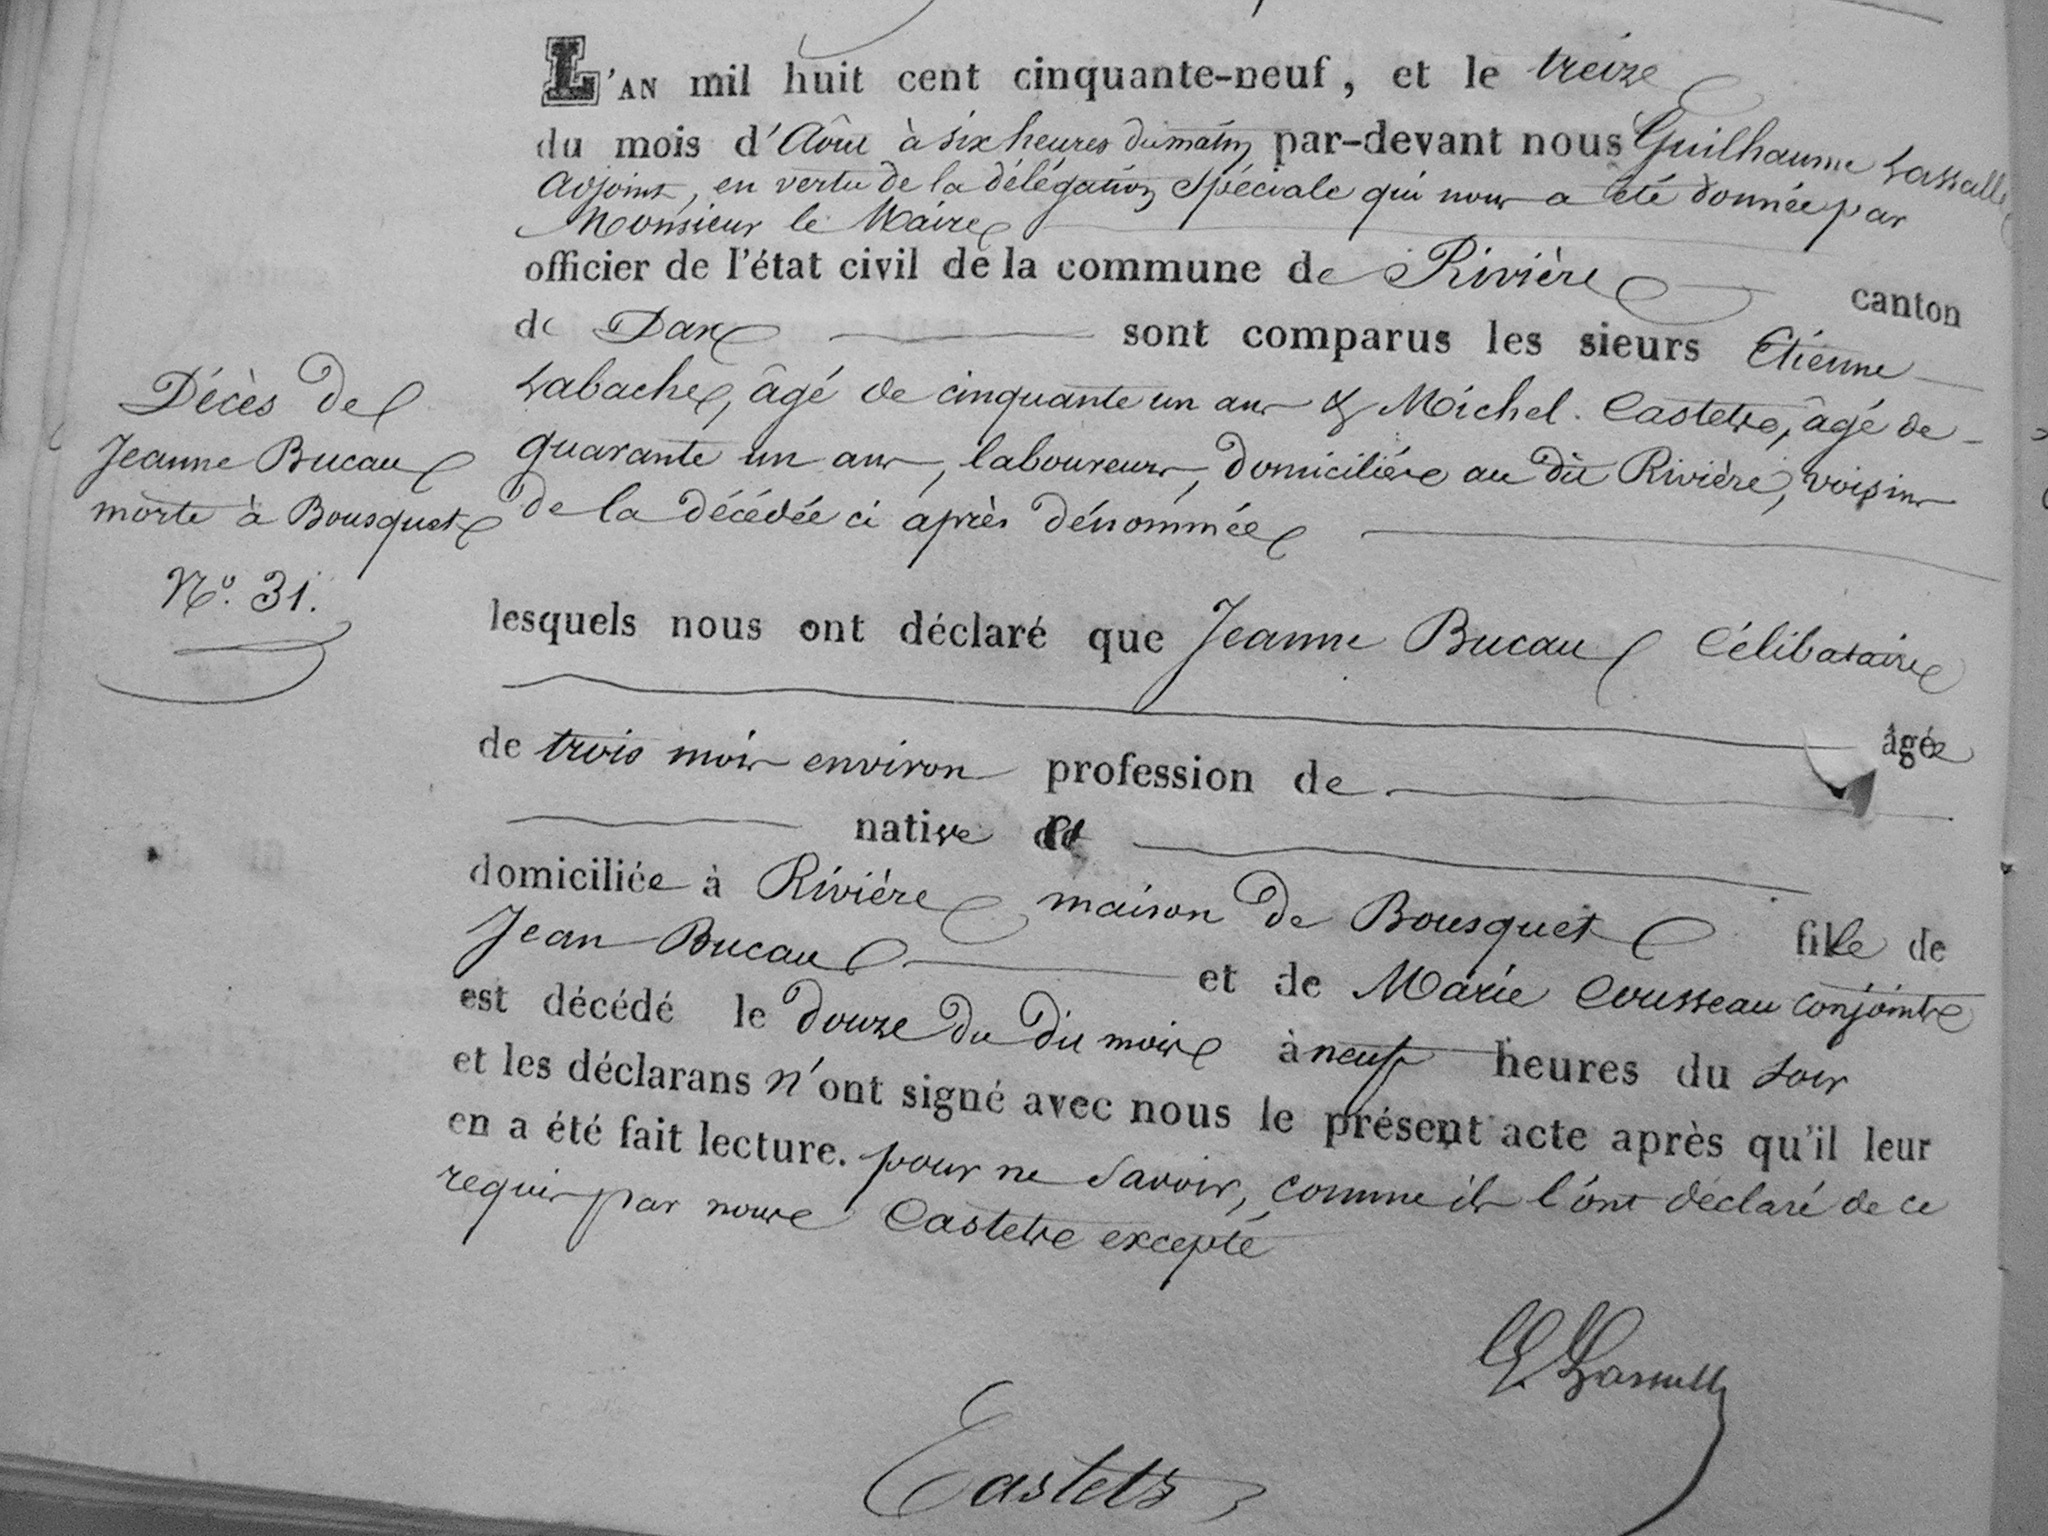 L'AN mil huit cent cinquante-neuf, et le treize
du mois d'Août à six heures du matin par-devant nous Guilhaume Lassalle
Adjoint, en vertu de la délégation spéciale qui nous a été donnée par
Monsieur le Maire
officier de l'état civil de la commune de Rivière canton
de Dax sont comparus les sieurs Etienne
Labache, âgé de cinquante un ans & Michel Castets, âgé de
quarante un ans, laboureurs, domiciliés au dit Rivière, voisins
de la décédée ci après dénommée
Décès de
Jeanne Bucau
morte à Bousquet
No. 31.
lesquels nous ont déclaré que Jeanne Bucau Célibataire
âgée
de trois mois environ profession de
native de
domiciliée à Rivière maison de Bousquet fille de
Jean Bucau et de Marie Cousseau conjoints
est décédé le douze du dit mois à neuf heures du soir
et les déclarans n'ont signé avec nous le présent acte après qu'il leur
en a été fait lecture. pour ne savoir, comme ils l'ont déclaré de ce
requis par nous Castets excepté
G. Lassalle
Castets